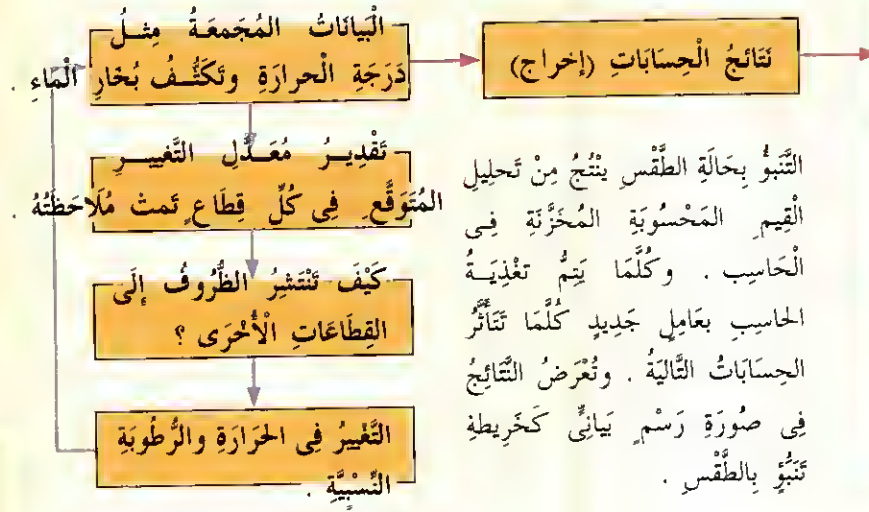 الْبَيانَاتُ المُجَمعَةُ مِثلُ
دَرَجَةِ الْحرارَةِ وتَكَثُّفُ بُخَارِ الْمَاءِ .
تَقْدِيرُ مُعَدَّلِ التَّغييرِ
المُتَوَقَّعِ فِى كُلِّ قِطَاعٍ تَمتْ مُلَاحَظَتُهُ .
كَيْفَ تَنْتَشِرُ الظُّرُوفُ إِلَى
القِطَاعَاتِ الْأُخْرَى ؟
التَّغْيِيرُ فِى الحَرَارَةِ والرُّطُوبَةِ
النِّسْبِيَّةِ .
نَتَائجُ الْحِسَابَاتِ (إخراج)
التَّنَبؤُ بِحَالَةِ الطَّقْسِ يَنْتُجُ مِنْ تَحلِيلِ
الْقِيمِ المَحْسُوبَةِ المُخَزَّنَةِ فِى
الْحَاسِب . وكُلَّمَا يَتِمُّ تغْذِيَةُ
الحاسِبِ بعَامِلٍ جَدِيدٍ كُلَّمَا تَتَأَثَّرُ
الحِسَابَاتُ التَّاليَةُ . وتُعْرَضُ النَّتَائِجُ
فِى صُورَةِ رَسْمٍ بَيانِىٍّ كَخَرِيطةِ
تَنَبُّؤٍ بِالطَّقْسِ .